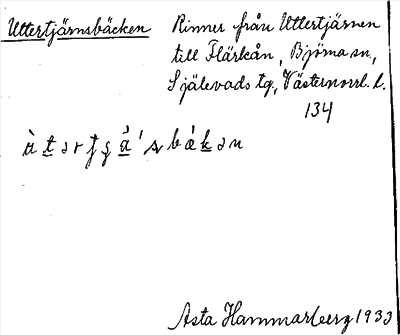 Uttertjärnsbäcken
Rinner från Uttertjärnen
till Flärkån, Björna sn,
Själevads tg, Västernorrl. l.
134
Asta Hammarberg 1933